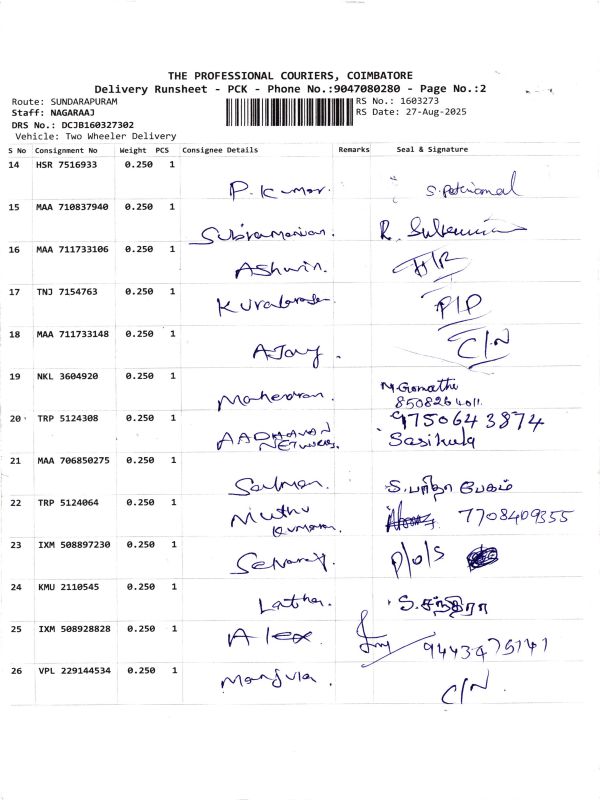 THE PROFESSIONAL COURIERS, COIMBATORE
Delivery Runsheet - PCK - Phone No.:9047080280 - Page No.:2
Route: SUNDARAPURAM RS No.: 1603273
Staff: NAGARAAJ RS Date: 27-Aug-2025
DRS No.: DCJB160327302
Vehicle: Two Wheeler Delivery
S No Consignment No Weight PCS Consignee Details Remarks Seal & Signature
14 HSR 7516933 0.250 1
P. Kumar.
15 MAA 710837940 0.250 1
Subramanian. R.
16 MAA 711733106 0.250 1
Ashwin. H/R
17 TNJ 7154763 0.250 1
P/P
18 MAA 711733148 0.250 1
AJay. C/N
19 NKL 3604920 0.250 1
Maheswaran. M. Gomathi
8508264011
20 TRP 5124308 0.250 1 9750643874
AADHAVAN Sasikula
NETWORKS.
21 MAA 706850275 0.250 1
Salman. S. பரிதா பேகம்
22 TRP 5124064 0.250 1
Muthu 7708409355
Kumaran.
23 IXM 508897230 0.250 1
Selvaraj. P/O/S
24 KMU 2110545 0.250 1
Latha. S. சந்திரா
25 IXM 508928828 0.250 1
Alex 9443475141
26 VPL 229144534 0.250 1
Manjula. C/N.